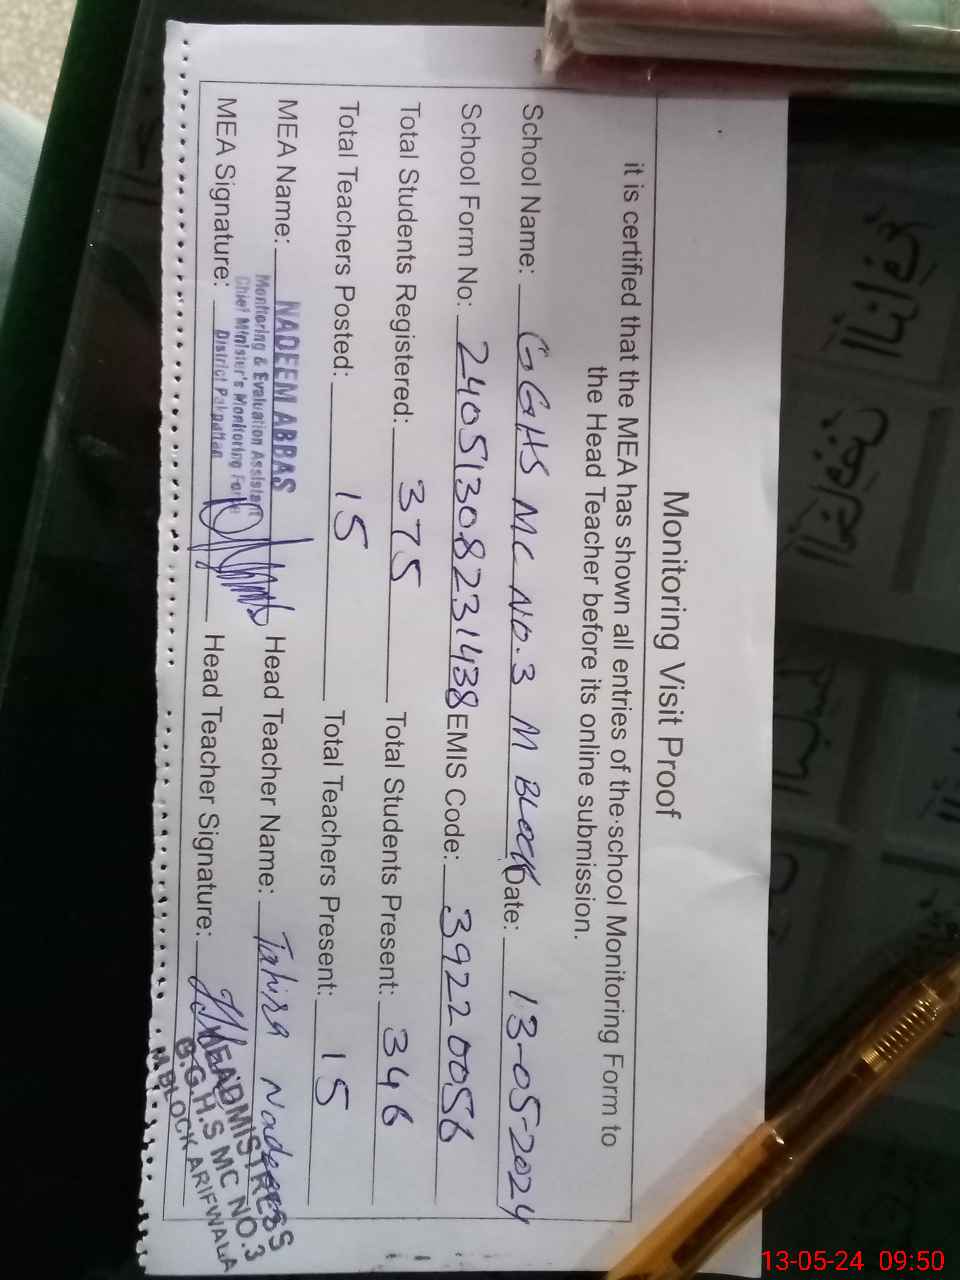 Monitoring Visit Proof
it is certified that the MEA has shown all entries of the school Monitoring Form to
the Head Teacher before its online submission.
School Name: GGHS MC NO.3 M BLOCK Date: 13-05-2024
School Form No: 24051308231438 EMIS Code: 39220056
Total Students Registered: 375 Total Students Present: 346
Total Teachers Posted: 15 Total Teachers Present: 15
MEA Name: NADEEM ABBAS Head Teacher Name: Tahira Nadeem
Monitoring & Evaluation Assistant
Chief Minister's Monitoring Force
District Pakpattan
MEA Signature: Head Teacher Signature:
HEADMISTRESS
G.G.H.S MC NO.3
M.BLOCK ARIFWALA
13-05-24 09:50